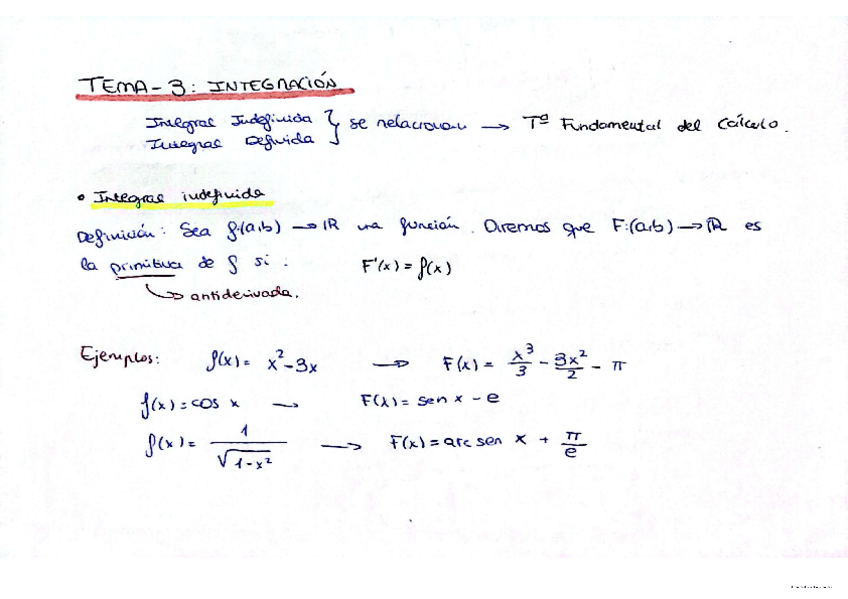 TEMA-3: INTEGRACIÓN
Integral Indefinida } se relacionan → Tª Fundamental del Cálculo.
Integral Definida
• Integral indefinida
Definición: Sea f:(a,b) → ℝ una función. Diremos que F:(a,b) → ℝ es
la primitiva de f si: F'(x) = f(x)
↳ antiderivada.
Ejemplos: f(x) = x² - 3x → F(x) = x³/3 - 3x²/2 - π
f(x) = cos x → F(x) = sen x - e
f(x) = 1/√(1-x²) → F(x) = arc sen x + π/e